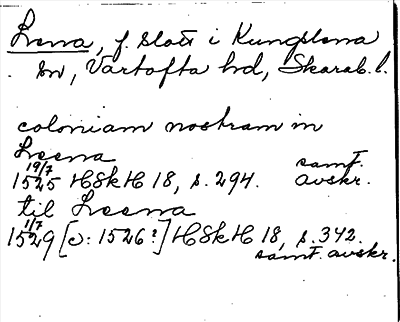 Lena, f. slott i Kungslena
sn, Vartofta hd, Skarab. l.
coloniam nostram in
Leena
19/7
1525 HSkH 18, s. 294. samt. avskr.
til Leena
1/7
1529 [ɔ: 1526?] HSkH 18, s. 342.
samt. avskr.